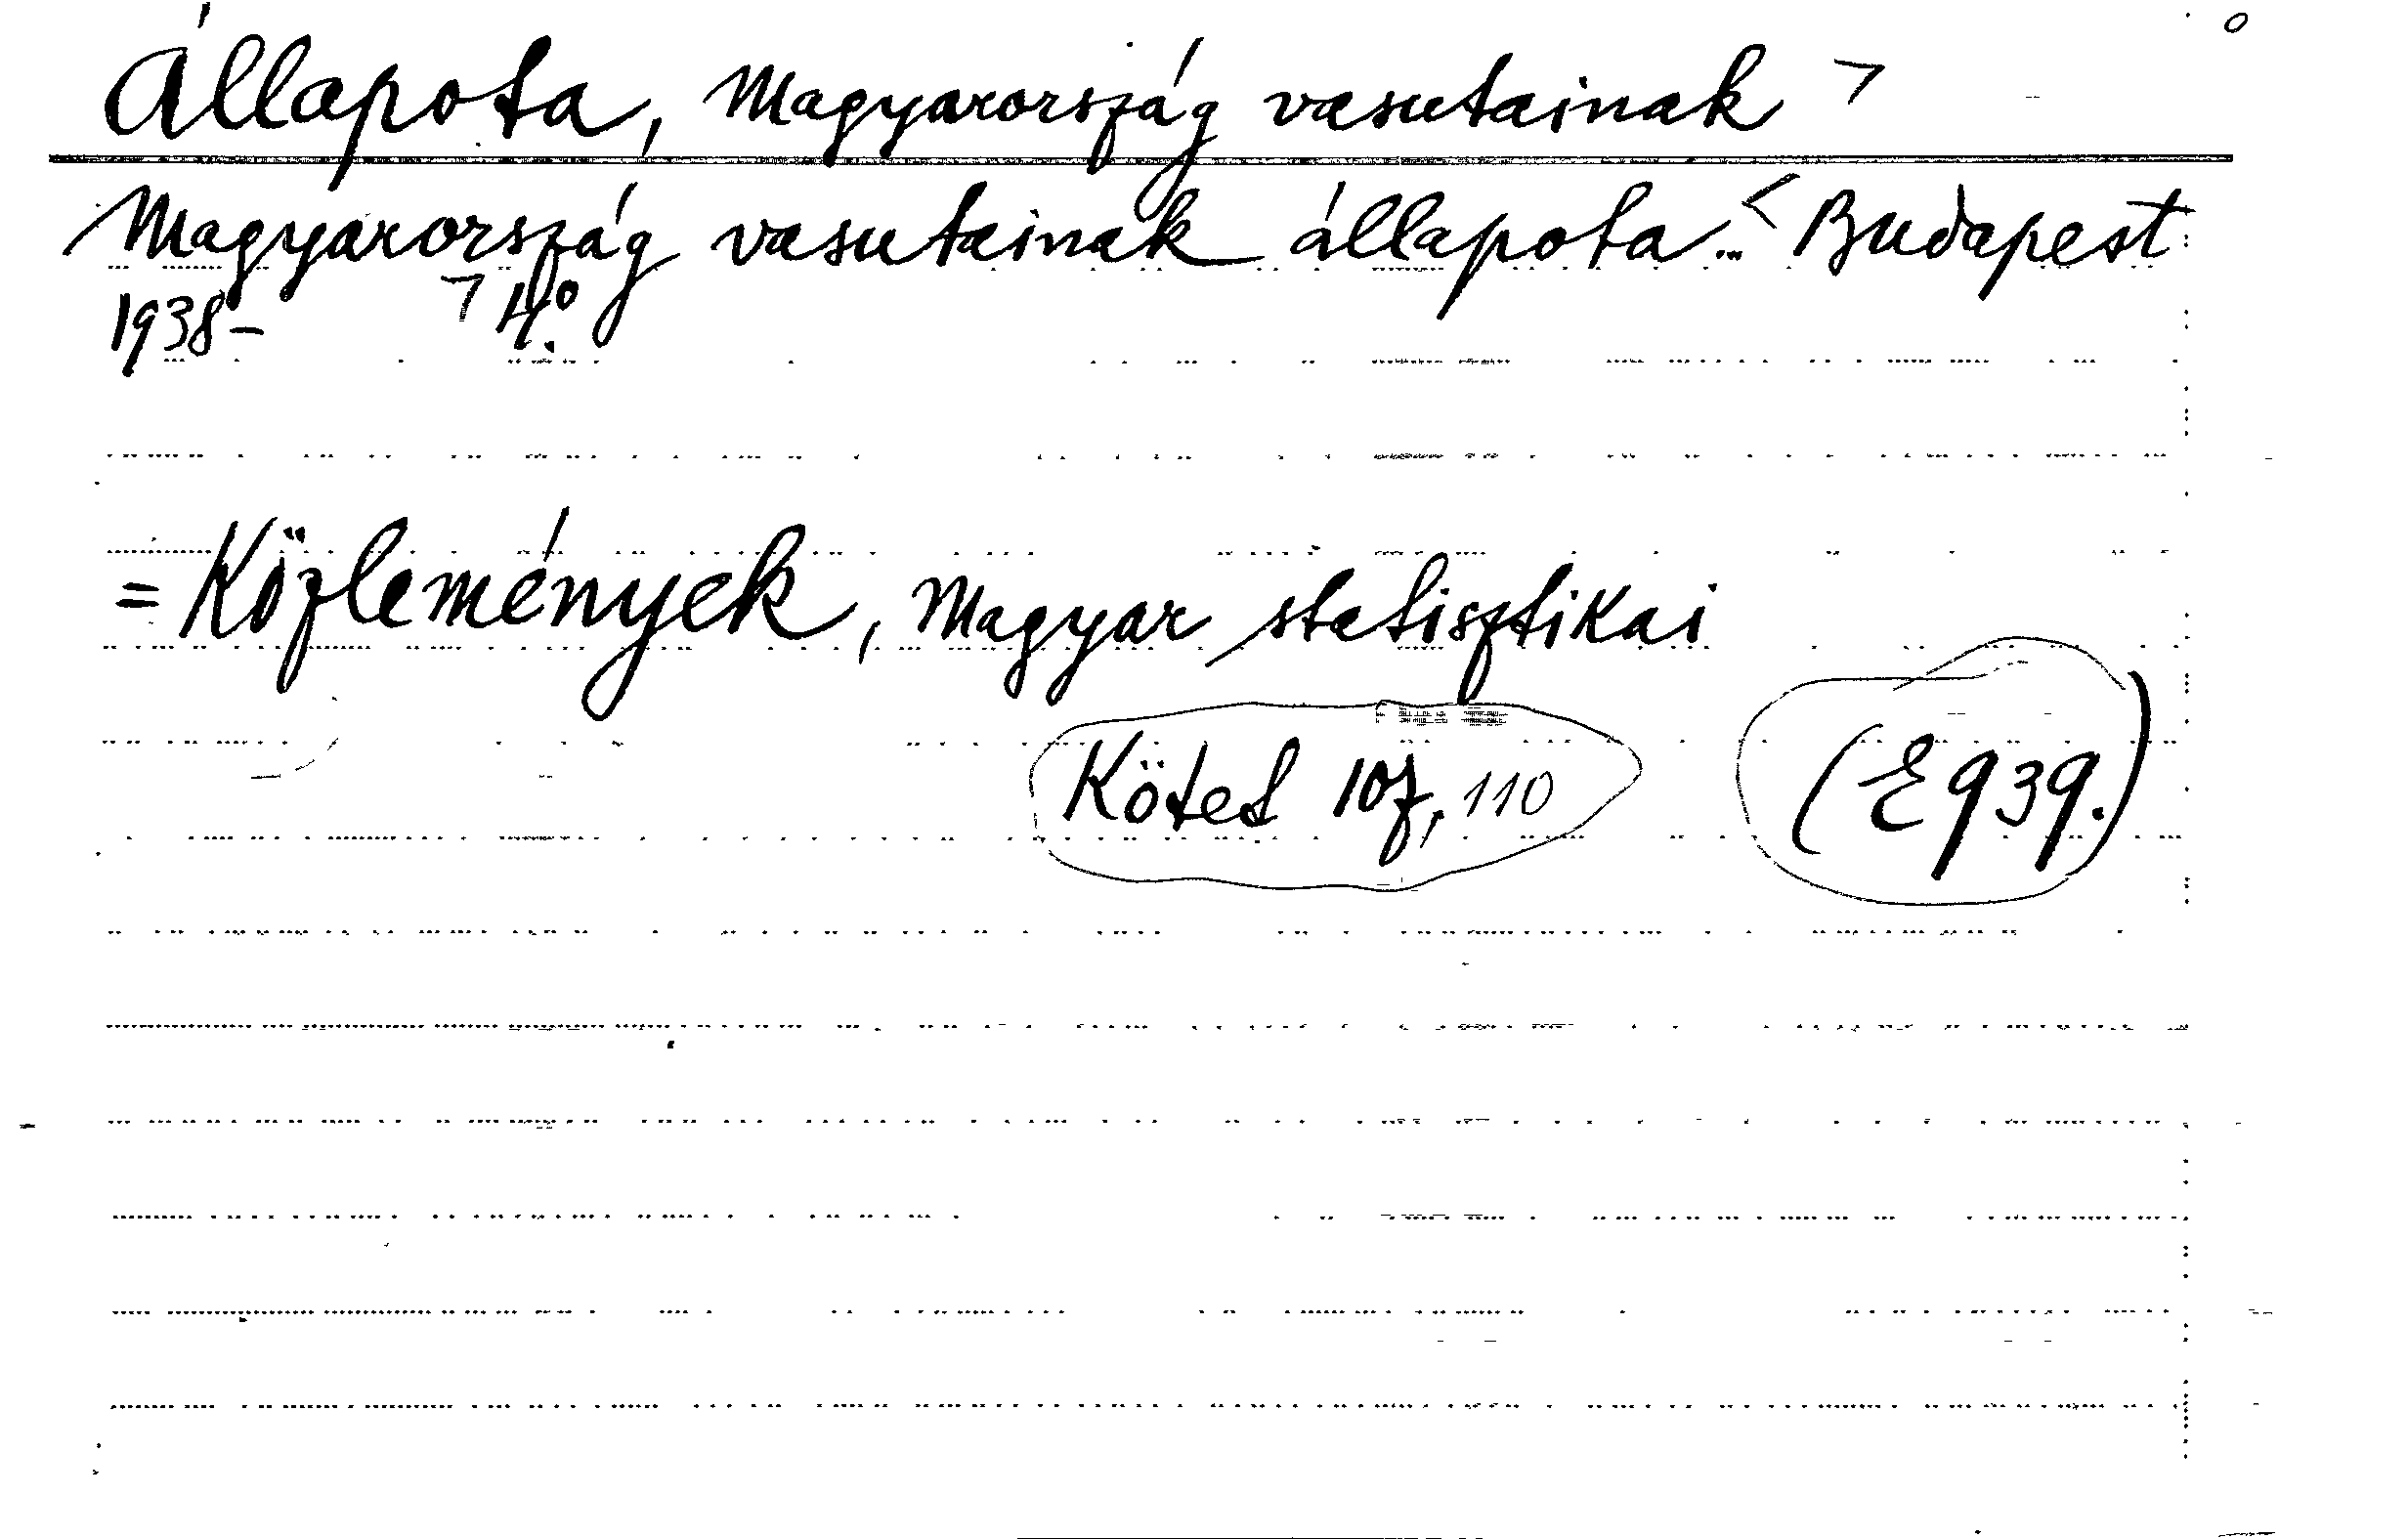 Állapota, Magyarország vasutainak ¬
Magyarország vasutainak állapota...< Budapest
1938- ¬ 4.°
= Közlemények, Magyar statisztikai
Kötet 107, 110 (E939.)